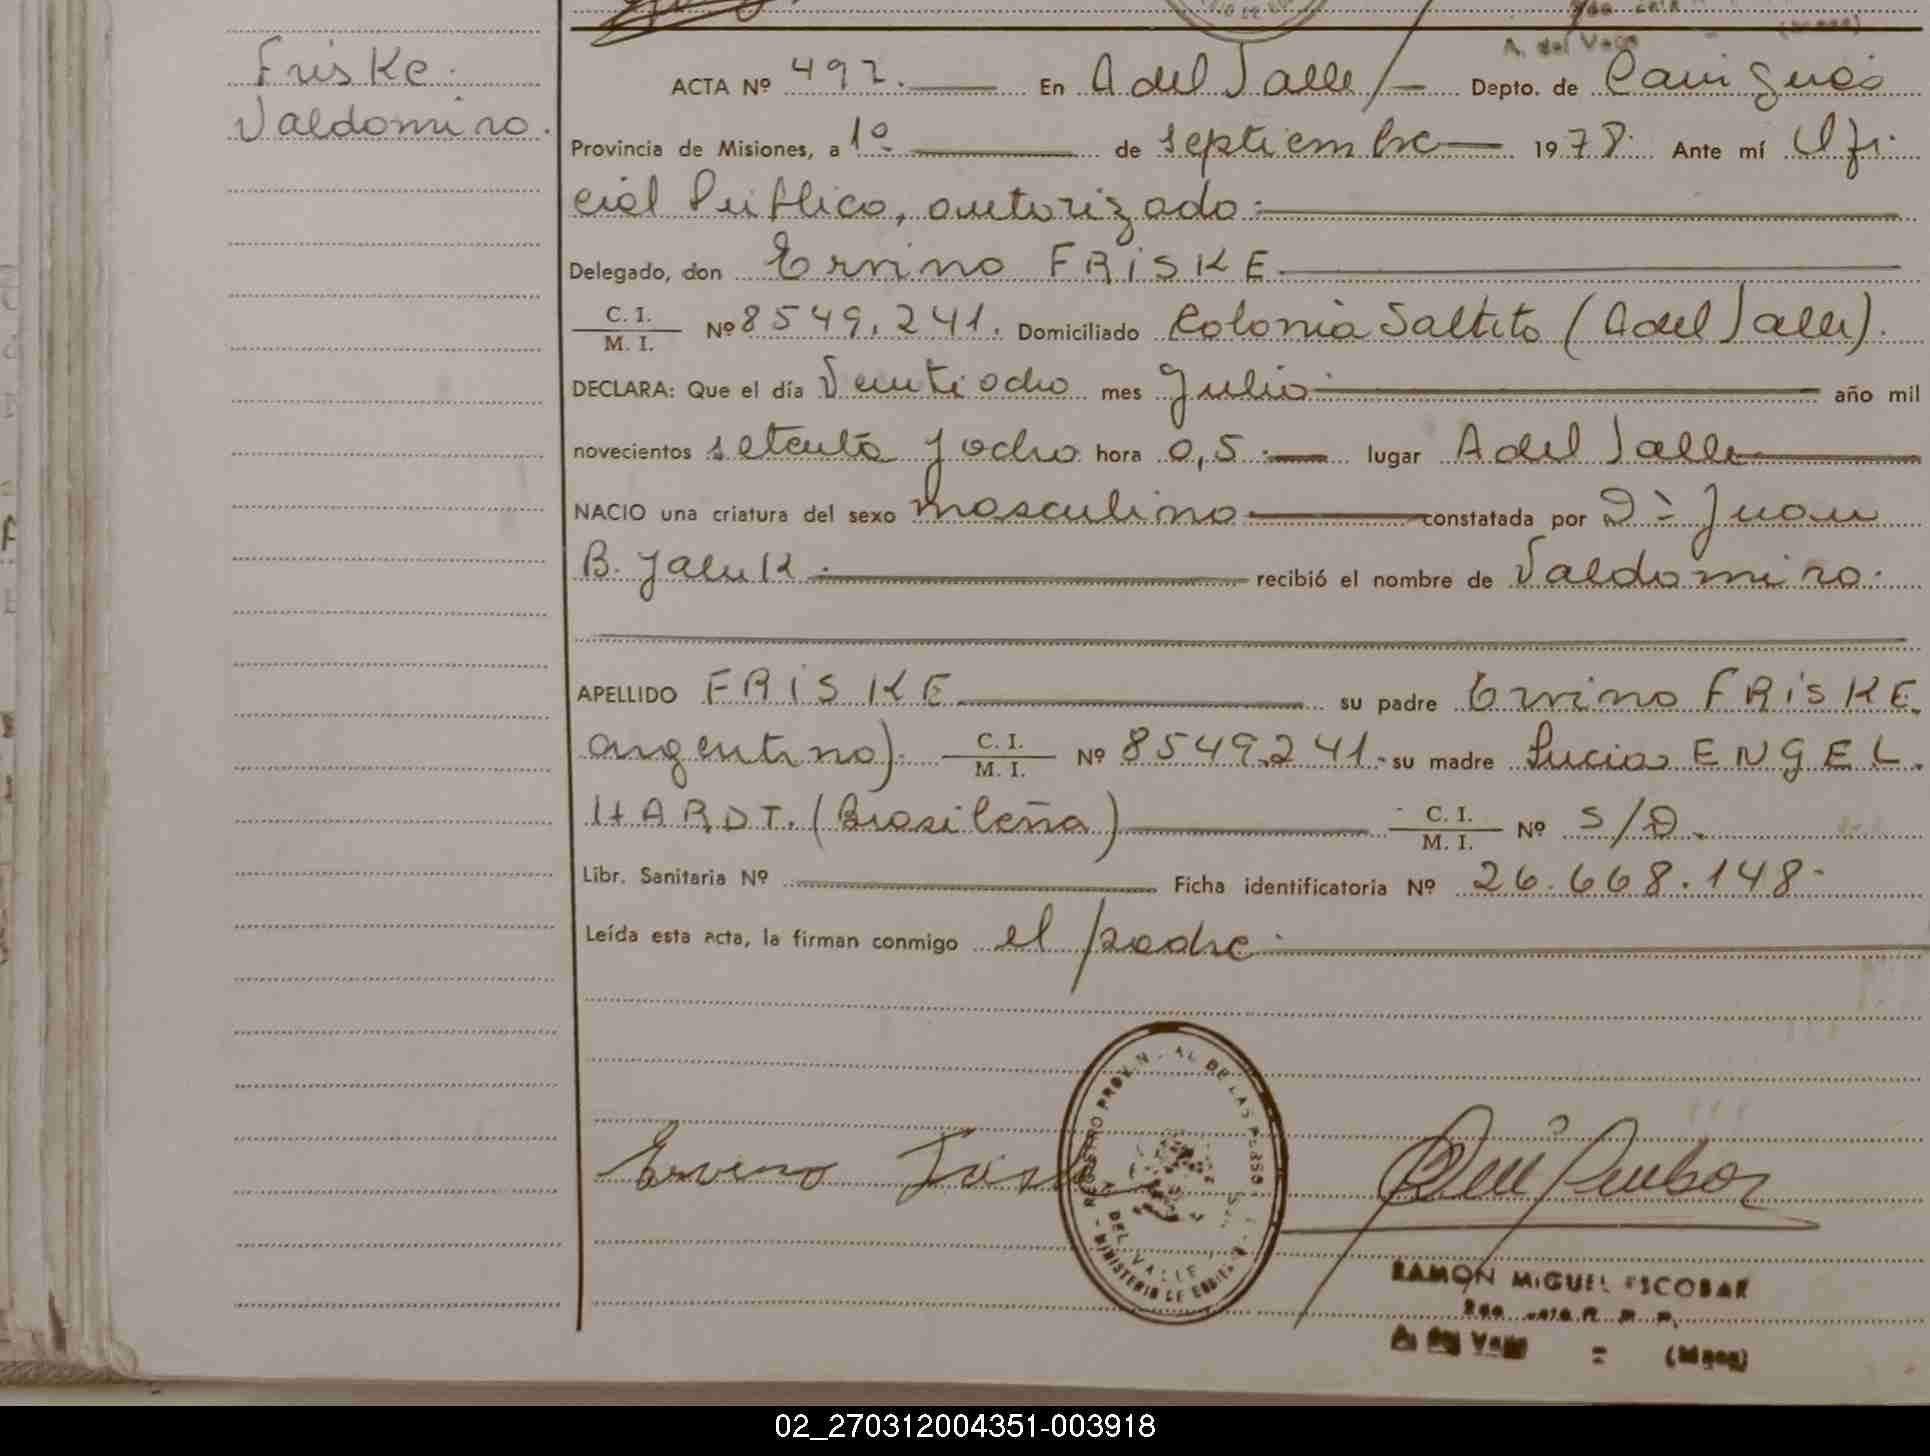 Friske
Valdomiro.
A. del Valle
ACTA Nº 492. En A del Valle Depto. de Cainguás
Provincia de Misiones, a 1º de septiembre 1978. Ante mí Ofi
cial Público, autorizado
Delegado, don Ervino FRISKE
C. I. / M. I. Nº 8549.241. Domiciliado Colonia Saltito (A del Valle).
DECLARA: Que el día Veintiocho mes Julio año mil
novecientos setenta y ocho hora 0,5 lugar A del Valle
NACIO una criatura del sexo masculino constatada por Dº Juan
B. Jaluk recibió el nombre de Valdomiro.
APELLIDO FRISKE su padre Ervino FRISKE
argentino). C. I. / M. I. Nº 8549.241. su madre Lucia ENGEL
HARDT. (Brasileña) C. I. / M. I. Nº S/D.
Libr. Sanitaria Nº Ficha identificatoria Nº 26.668.148.
Leída esta acta, la firman conmigo el padre
REGISTRO PROVINCIAL DE LAS PERSONAS
A. DEL VALLE
MINISTERIO DE GOBIERNO
Ervino Friske
RAMON MIGUEL ESCOBAR
A. del Valle = (Mnes)
02_270312004351-003918